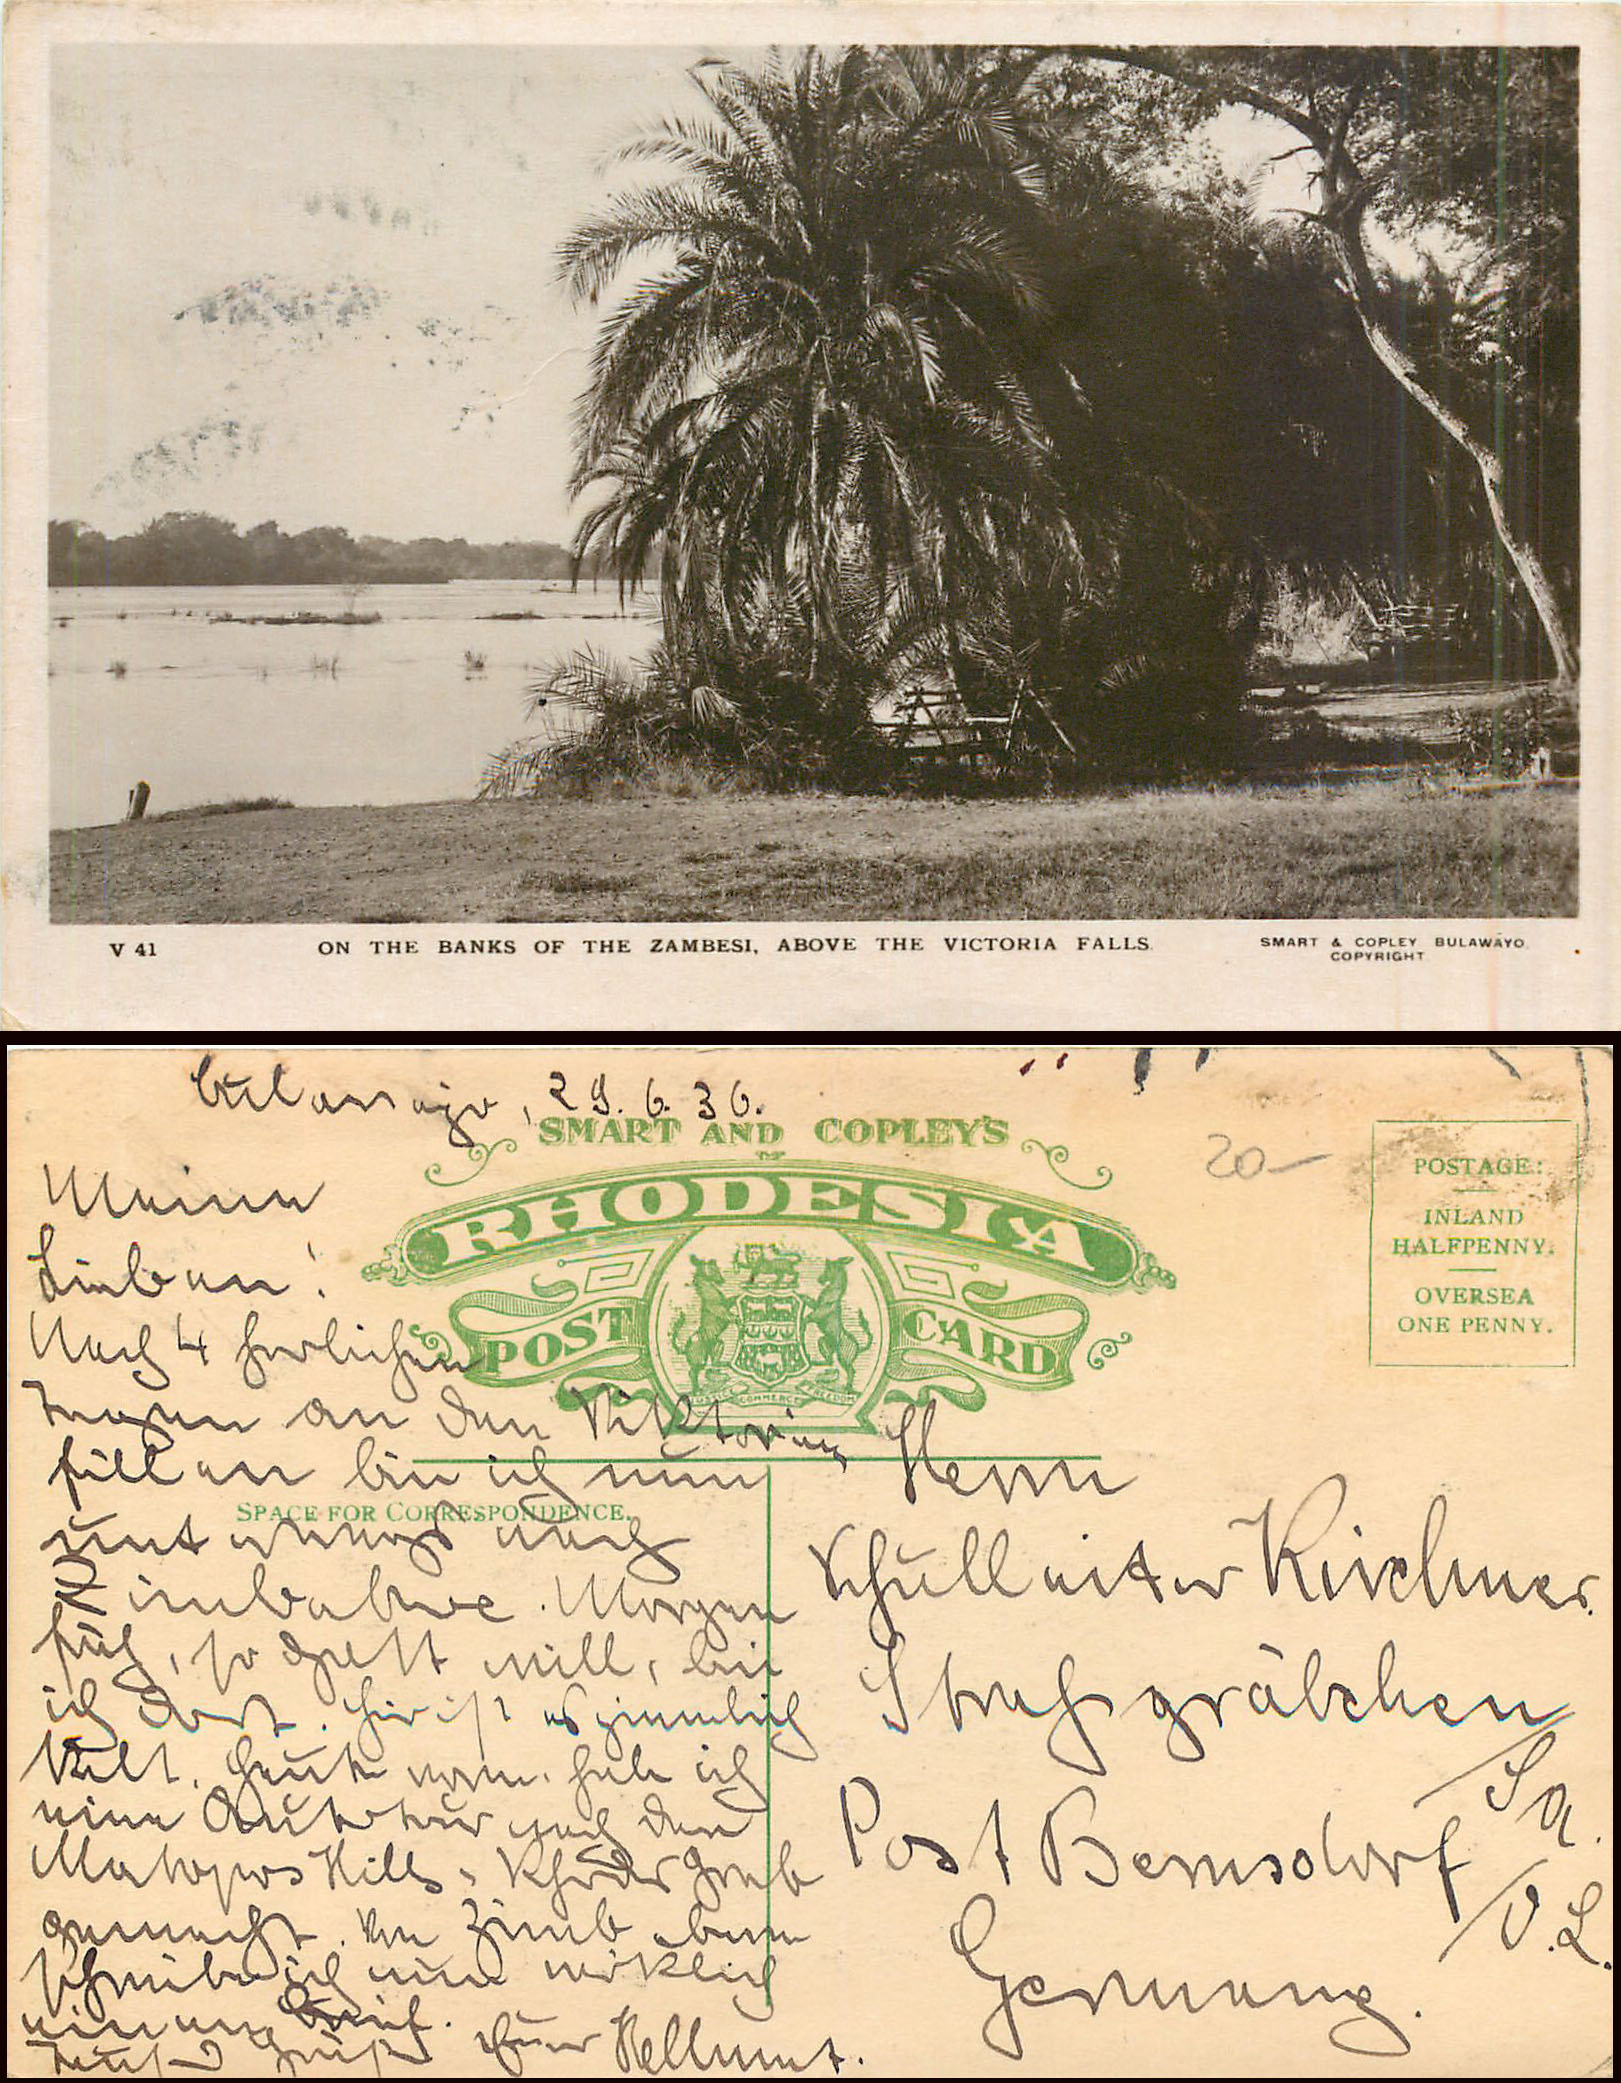 V 41
ON THE BANKS OF THE ZAMBESI, ABOVE THE VICTORIA FALLS.
SMART & COPLEY BULAWAYO.
COPYRIGHT
Bulawayo, 29.6.36.
SMART AND COPLEY'S
RHODESIA
POST CARD
JUSTICE COMMERCE FREEDOM
20-
POSTAGE:
INLAND
HALFPENNY.
OVERSEA
ONE PENNY.
SPACE FOR CORRESPONDENCE.
Meine
Lieben!
Nach 4 herrlichen
Tagen an den Viktoria
fällen bin ich nun
unterwegs nach
Zimbabwe. Morgen
früh, so Gott will, bin
ich dort. Hier ist es ziemlich
kalt. Heute vorm. habe ich
eine Autotour nach den
Matopos Hills, Rhodes Grab
gemacht. Von Zimbabwe
schreibe ich nun wirklich
einen Brief.
Euer Hellmut.
Herrn
Schulleiter Kirchner.
Straßgräbchen
Post Bernsdorf
/Sa.
/O.L.
Germany.